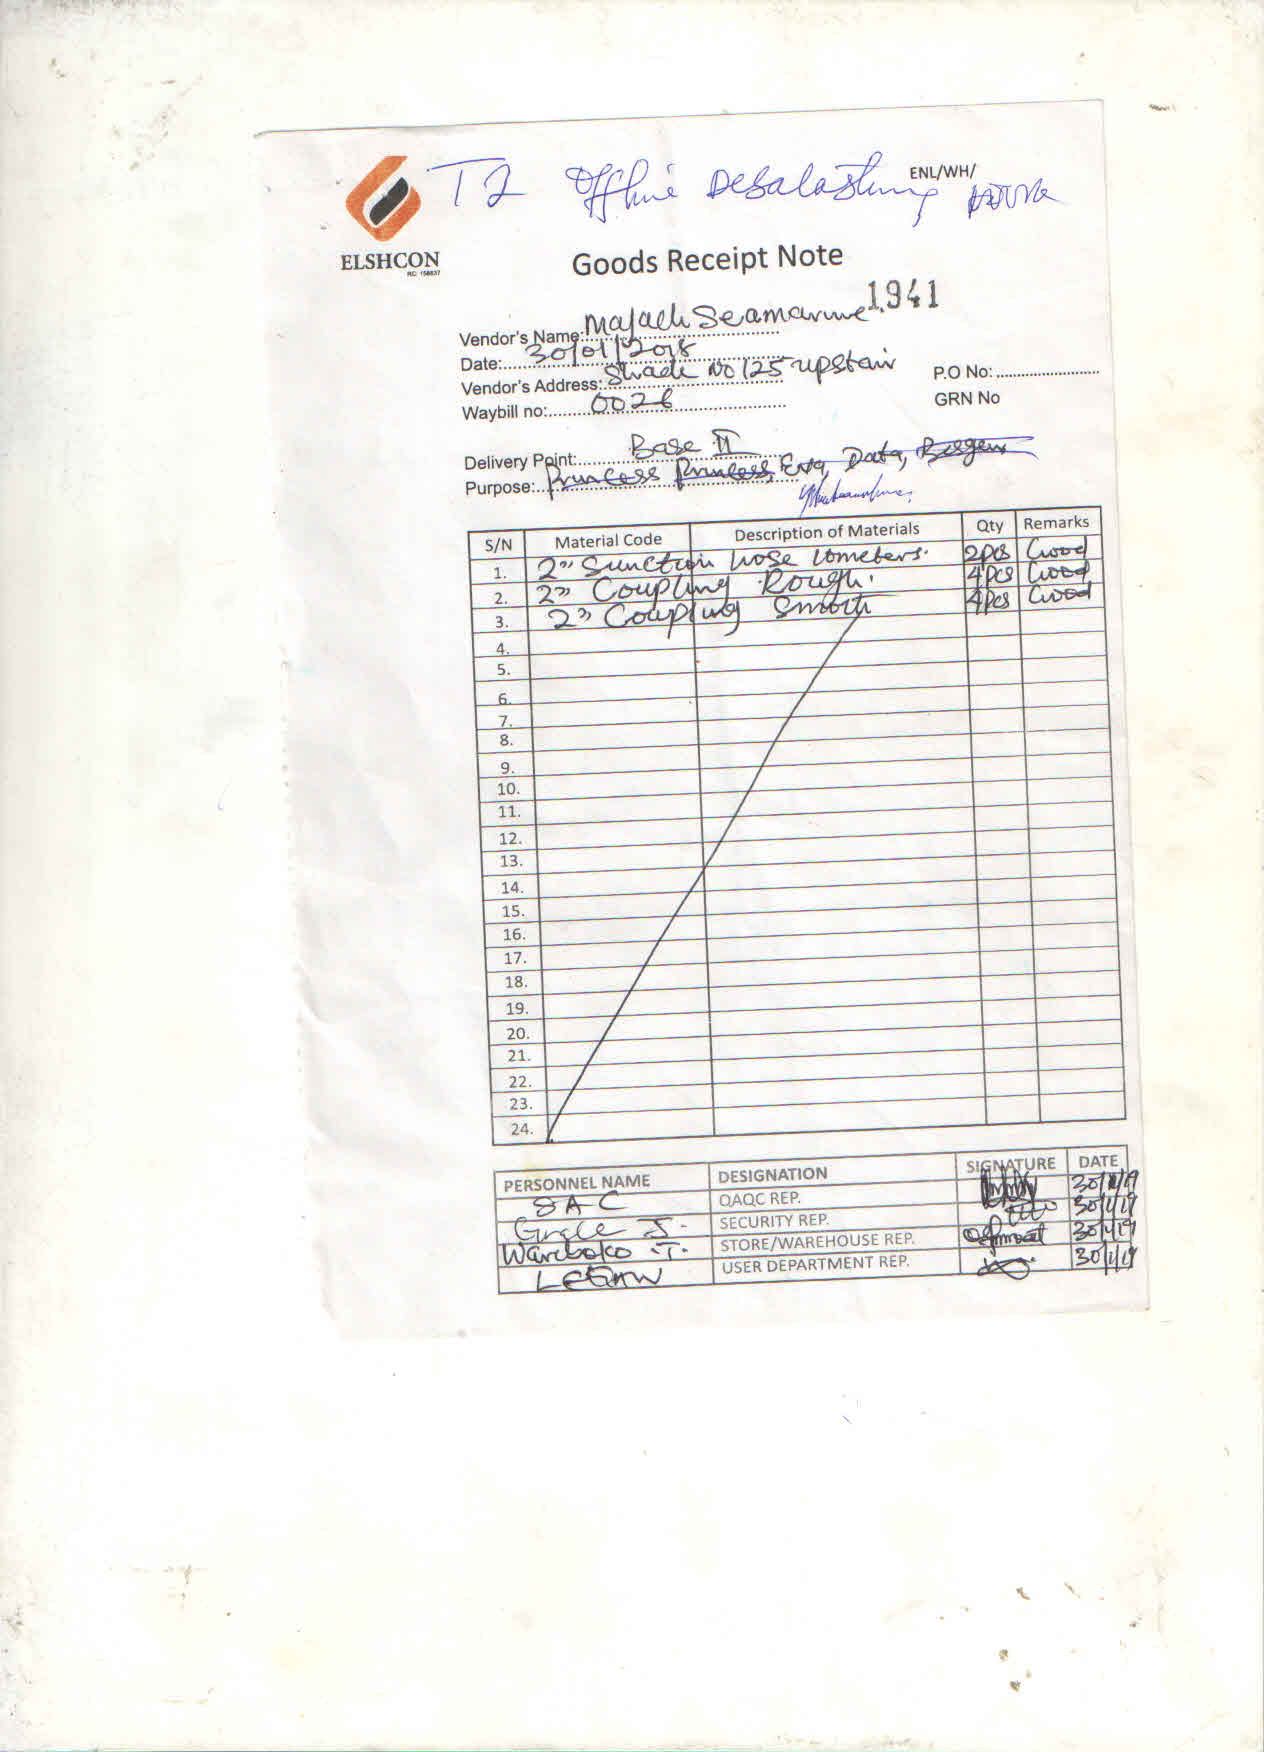 T2 Offline Debalasting
ENL/WH/
ELSHCON
RC: 158837
Goods Receipt Note
1941
Vendor's Name: Majach Seamarine
Date: 30/01/2018
Vendor's Address: Shade No 125 upstair
P.O No:
Waybill no: 0026
GRN No
Delivery Point: Base II
Purpose: Princess Princess, Eva, Data, Bergen
S/N Material Code Description of Materials Qty Remarks
1. 2" Sunction hose 10meters. 2pcs Good
2. 2" Coupling Rough. 4pcs Good
3. 2" Coupling Smoth 4pcs Good
4.
5.
6.
7.
8.
9.
10.
11.
12.
13.
14.
15.
16.
17.
18.
19.
20.
21.
22.
23.
24.
PERSONNEL NAME DESIGNATION SIGNATURE DATE
QAQC REP.
Grace J. SECURITY REP. 30/1/19
Wariboko .T. STORE/WAREHOUSE REP. 30/1/19
USER DEPARTMENT REP. 30/1/19